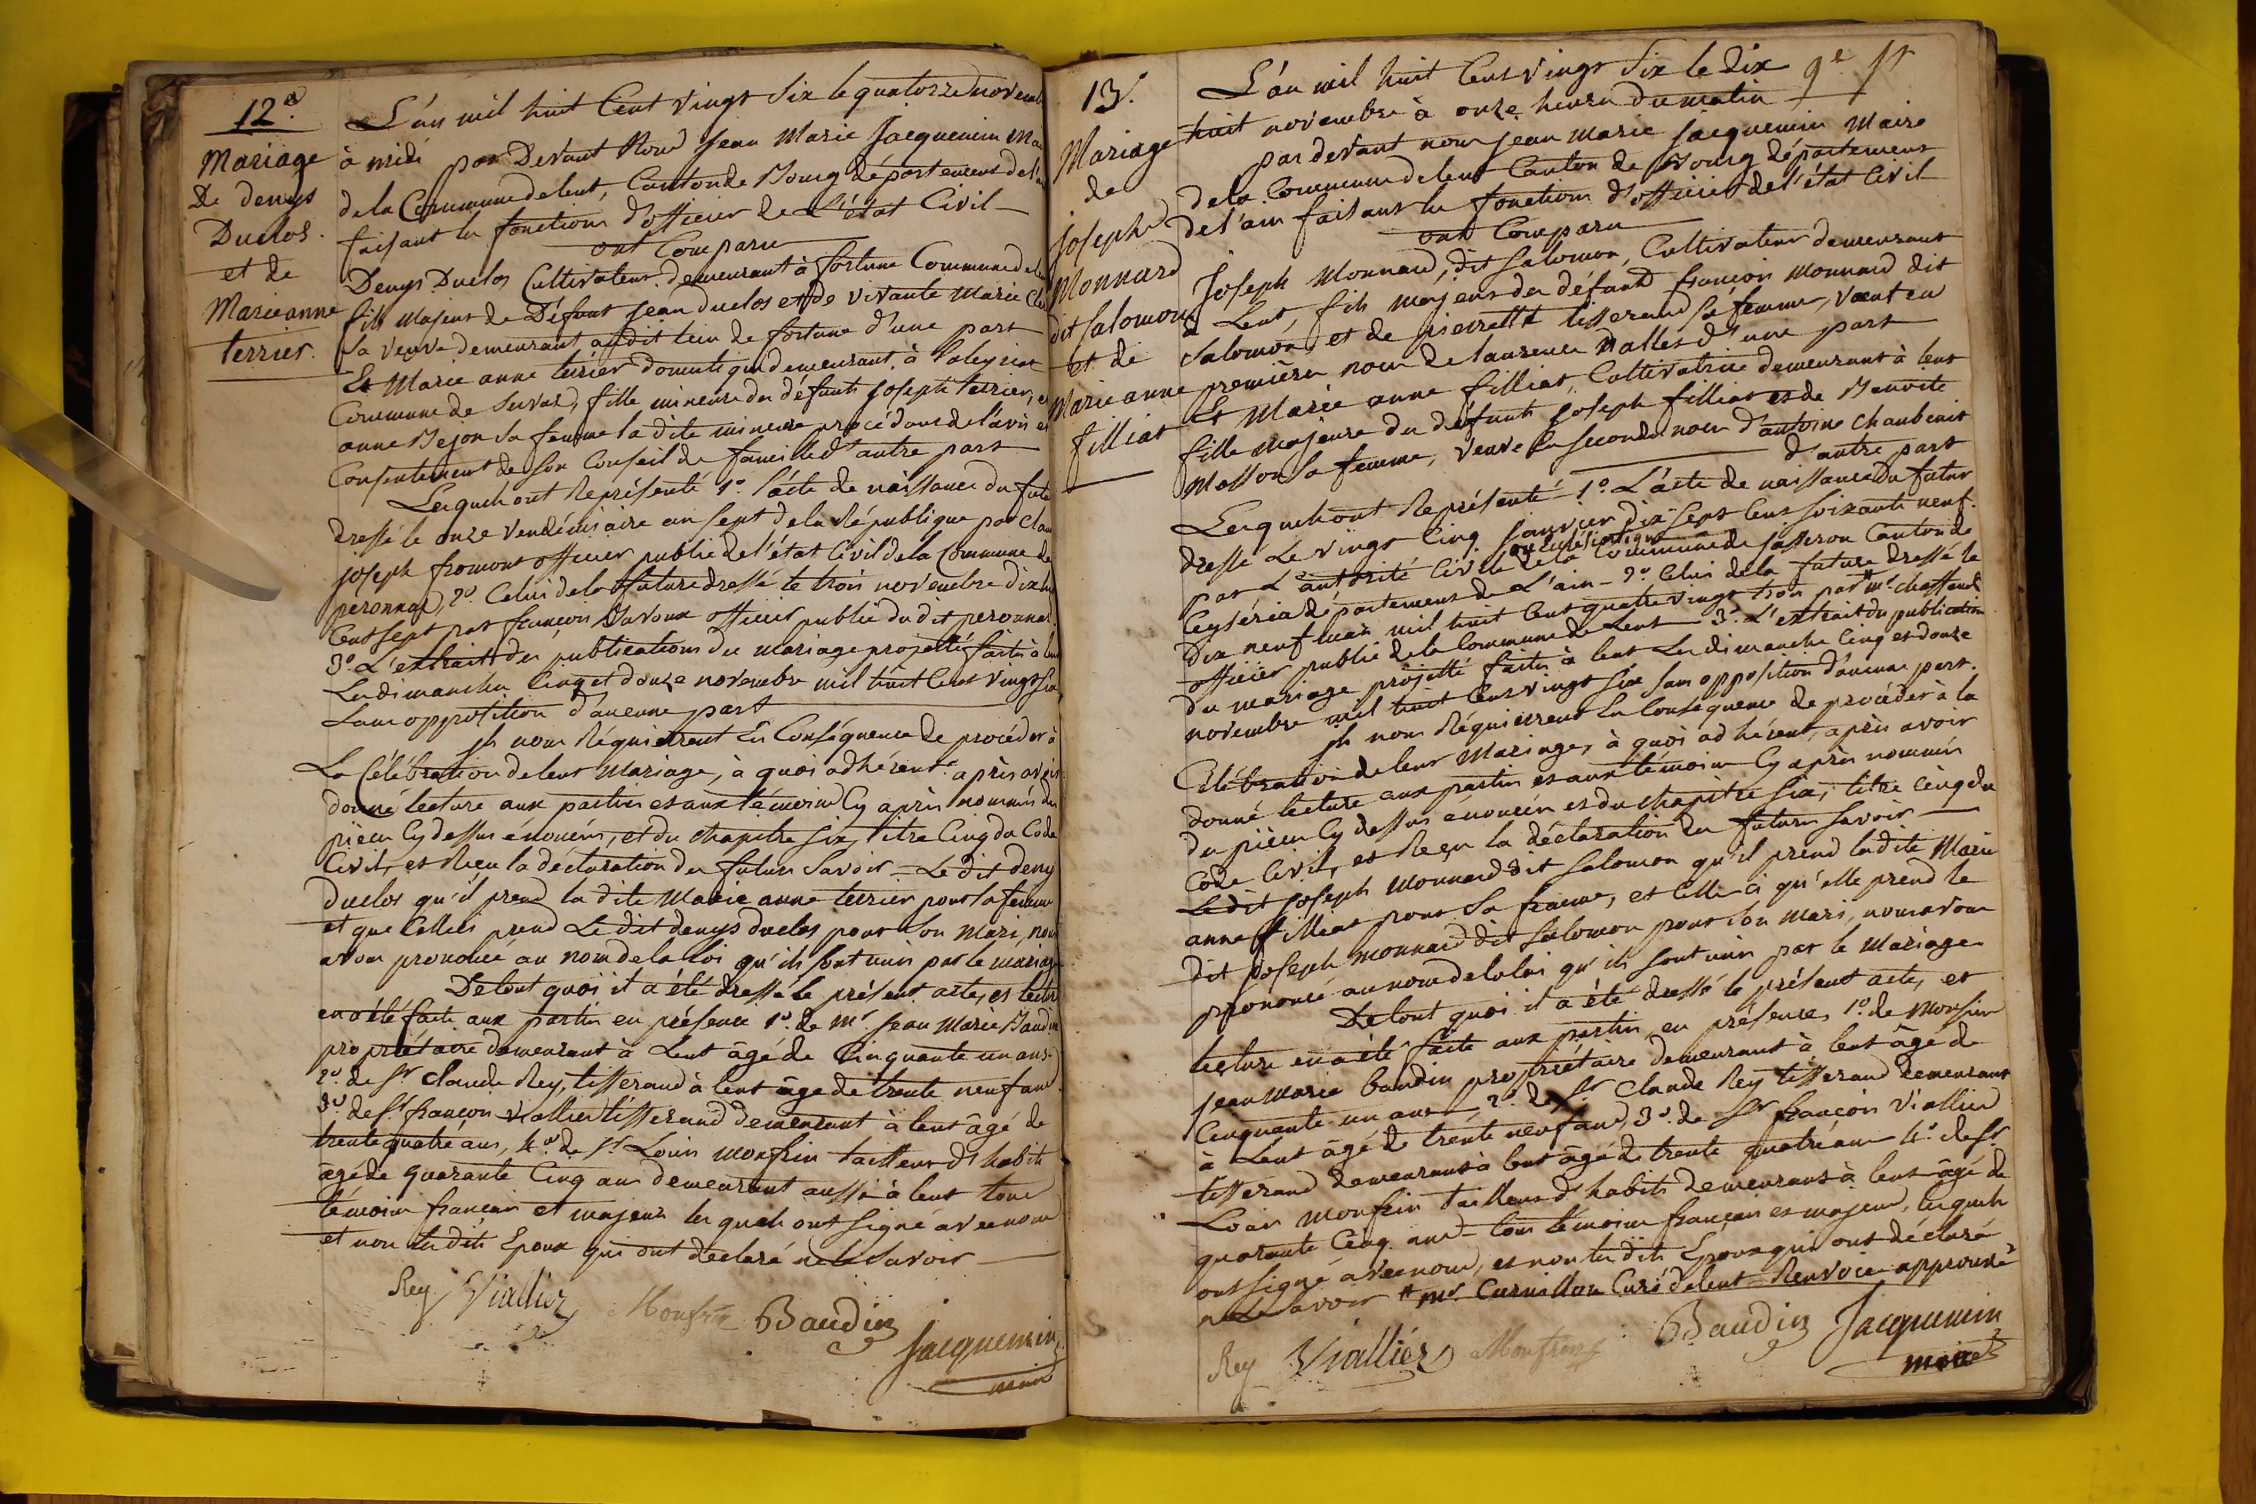 12.e
Mariage
De denys
Duclos.
et de
Marie anne
terrier.
L'an mil huit Cent vingt Six le quatorze novemb
à midi par Devant Nous Jean Marie Jacquemin Mai
de la Commune de lent, Canton de Bourg département de l'
faisant les fonctions d'officier de L'état Civil
ont Comparu
Denys Duclos Cultivateur demeurant à fortune Commune de
fils majeur de Défunt Jean duclos et de vivante Marie
Sa veuve demeurant au dit lieu de fortune d'une part
Et Marie anne terrier domestique demeurant à
Commune de Servas, fille mineure des défunts Joseph terrier, e
anne Bejon sa femme la dite mineure procédant de l'avis et
Consentement de son Conseil de famille d'autre part
Lesquels ont Représenté 1.o l'acte de naissance du futu
dressé le onze vendémiaire an sept de la République par Clau
Joseph fromont officier public de l'état Civil de la Commune de
peronnas, 2.o Celui de la future dressé le trois novembre dix hu
Cent sept par françois officier public du dit peronnas
3.o L'extrait des publications du mariage projetté faites à le
Les dimanches Cinq et douze novembre mil huit Cent vingt six
Sans opposition d'aucune part
Ils nous Réquierrent En Conséquence de procéder à
La Célébration de leur Mariage, à quoi adhérent après avoir
donné lecture aux parties et aux témoins Cy après nommés des
pièces Cy dessus énoncées, et du chapitre six, titre Cinq du Code
Civil, et Reçu la déclaration des futurs Savoir = Le dit deny
Duclos qu'il prend la dite Marie anne terrier pour sa femme
et que Celle ci prend Le dit denys duclos pour Son Mari, nous
avons prononcé au nom de la loi qu'ils sont unis par le mariage
De tout quoi il a été dressé le présent acte, et lectur
en a été faite aux parties en présence 1.o de mr Jean Marie Baudin
propriétaire demeurant à Lent âgé de Cinquante un ans
2.o de Sr Claude Rey, tisserand à lent âgé de trente neuf ans
3.o de Sr françois viallier tisserand demeurant à lent âgé de
trente quatre ans, 4.o de Sr Louis monfrin tailleur d'habits
âgé de quarante Cinq ans demeurant aussi à lent tous
témoins français et majeurs lesquels ont signé avec nous
et non les dits Epoux qui ont déclaré ne le Savoir
Rey Viallier Monfrin Baudin
Jacquemin
maire
13.
Mariage
de
Joseph
Monnard
dit Salomon
et de
Marie anne
filliat
L'an mil huit Cent vingt Six le Dix
huit novembre à onze heures du matin
par devant nous Jean Marie Jacquemin Maire
de la Commune de lent Canton de Bourg département
de l'ain faisant les fonctions d'officier de l'état Civil
ont Comparu
Joseph Monnard, dit Salomon, Cultivateur demeurant
à Lent, fils majeur des défunts françois Monnard dit
Salomon, et de pierrette tisserand sa femme, veuf en
premières noces de laurence d'une part
Et Marie anne filliat, Cultivatrice demeurant à lent
fille majeure des défunts Joseph filliat et de Benoite
Masson Sa femme, veuve En secondes noces d'antoine Chaubenit
d'autre part
Lesquels ont Représenté 1.o L'acte de naissance du futur
dressé Le vingt Cinq janvier dix sept Cent soixante neuf
par L'autorité Civile ou Ecclésiastique de la Commune de Jasseron Canton de
Ceyséria département de L'ain - 2.o Celui de la future dressé le
Dix neuf mars mil huit Cent quatre vingt trois par # mr chaffaud
officier public de la Commune de Lent 3.o L'extrait des publications
du mariage projetté faites à lent Les dimanches Cinq et douze
novembre mil huit Cent vingt six sans opposition d'aucune part.
Ils nous Réquierrent En Conséquence de procéder à la
Célébration de leur Mariage, à quoi adhérent, après avoir
donné lecture aux parties et aux témoins Cy après nommés
des pièces Cy dessus énoncées et du chapitre six, titre Cinq du
Code Civil, et Reçu la déclaration des futurs Savoir
Le dit Joseph Monnard dit Salomon qu'il prend la dite Marie
anne filliat pour Sa femme, et Celle-ci qu'elle prend le
dit Joseph Monnard dit Salomon pour Son Mari, nous avons
prononcé au nom de la loi qu'ils sont unis par le Mariage
De tout quoi il a été dressé le présent acte, et
lecture en a été faite aux parties en présence 1.o de Monsieur
Jean Marie baudin propriétaire demeurant à lent âgé de
Cinquante un ans, 2.o de Sr Claude Rey tisserand demeurant
à Lent âgé de trente neuf ans, 3.o de Sr françois Viallier
tisserand demeurant à lent âgé de trente quatre ans 4.o de Sr
Louis Monfrin tailleur d'habits demeurant à lent âgé de
quarante Cinq ans - tous témoins français et majeurs, lesquels
ont signé avec nous, et non les dits Epoux qui ont déclaré
ne Le Savoir # mr Curnillon Curé de lent Renvoie approuvé
Rey Viallier Monfrin Baudin Jacquemin
maire